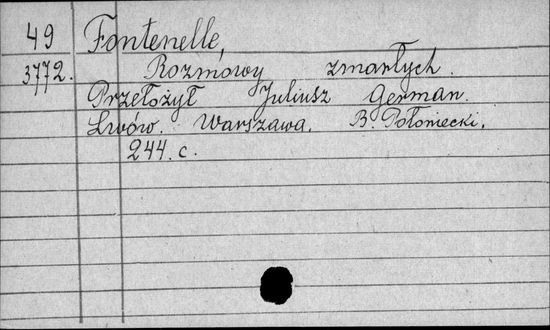 49 Fontenelle,
3772. Rozmowy zmarłych.
Przełożył Juliusz German.
Lwów. Warszawa. B. Połoniecki.
244. c.